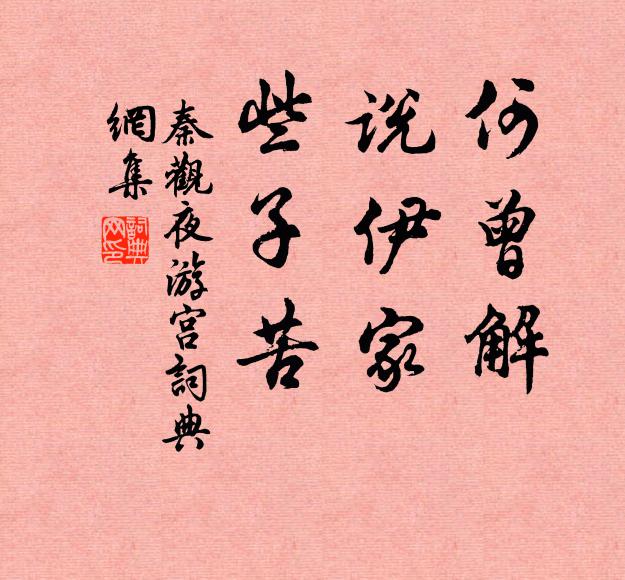 何曾解
说伊家
些子苦
秦觀夜游宫詞典
網集
詞典
网印